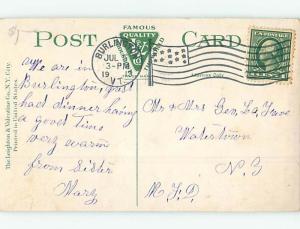 FAMOUS
QUALITY
POST CARD
BURLINGTON
JUL
3-PM
19 13
VT.
The Leighton & Valentine Co., N.Y. City.
Printed in United States.
Address Only
We are in
Burlington, just
had dinner having
a good time
very warm
from Sister
Mary
Mr & Mrs Geo.
Watertown
N.Y
R.F.D